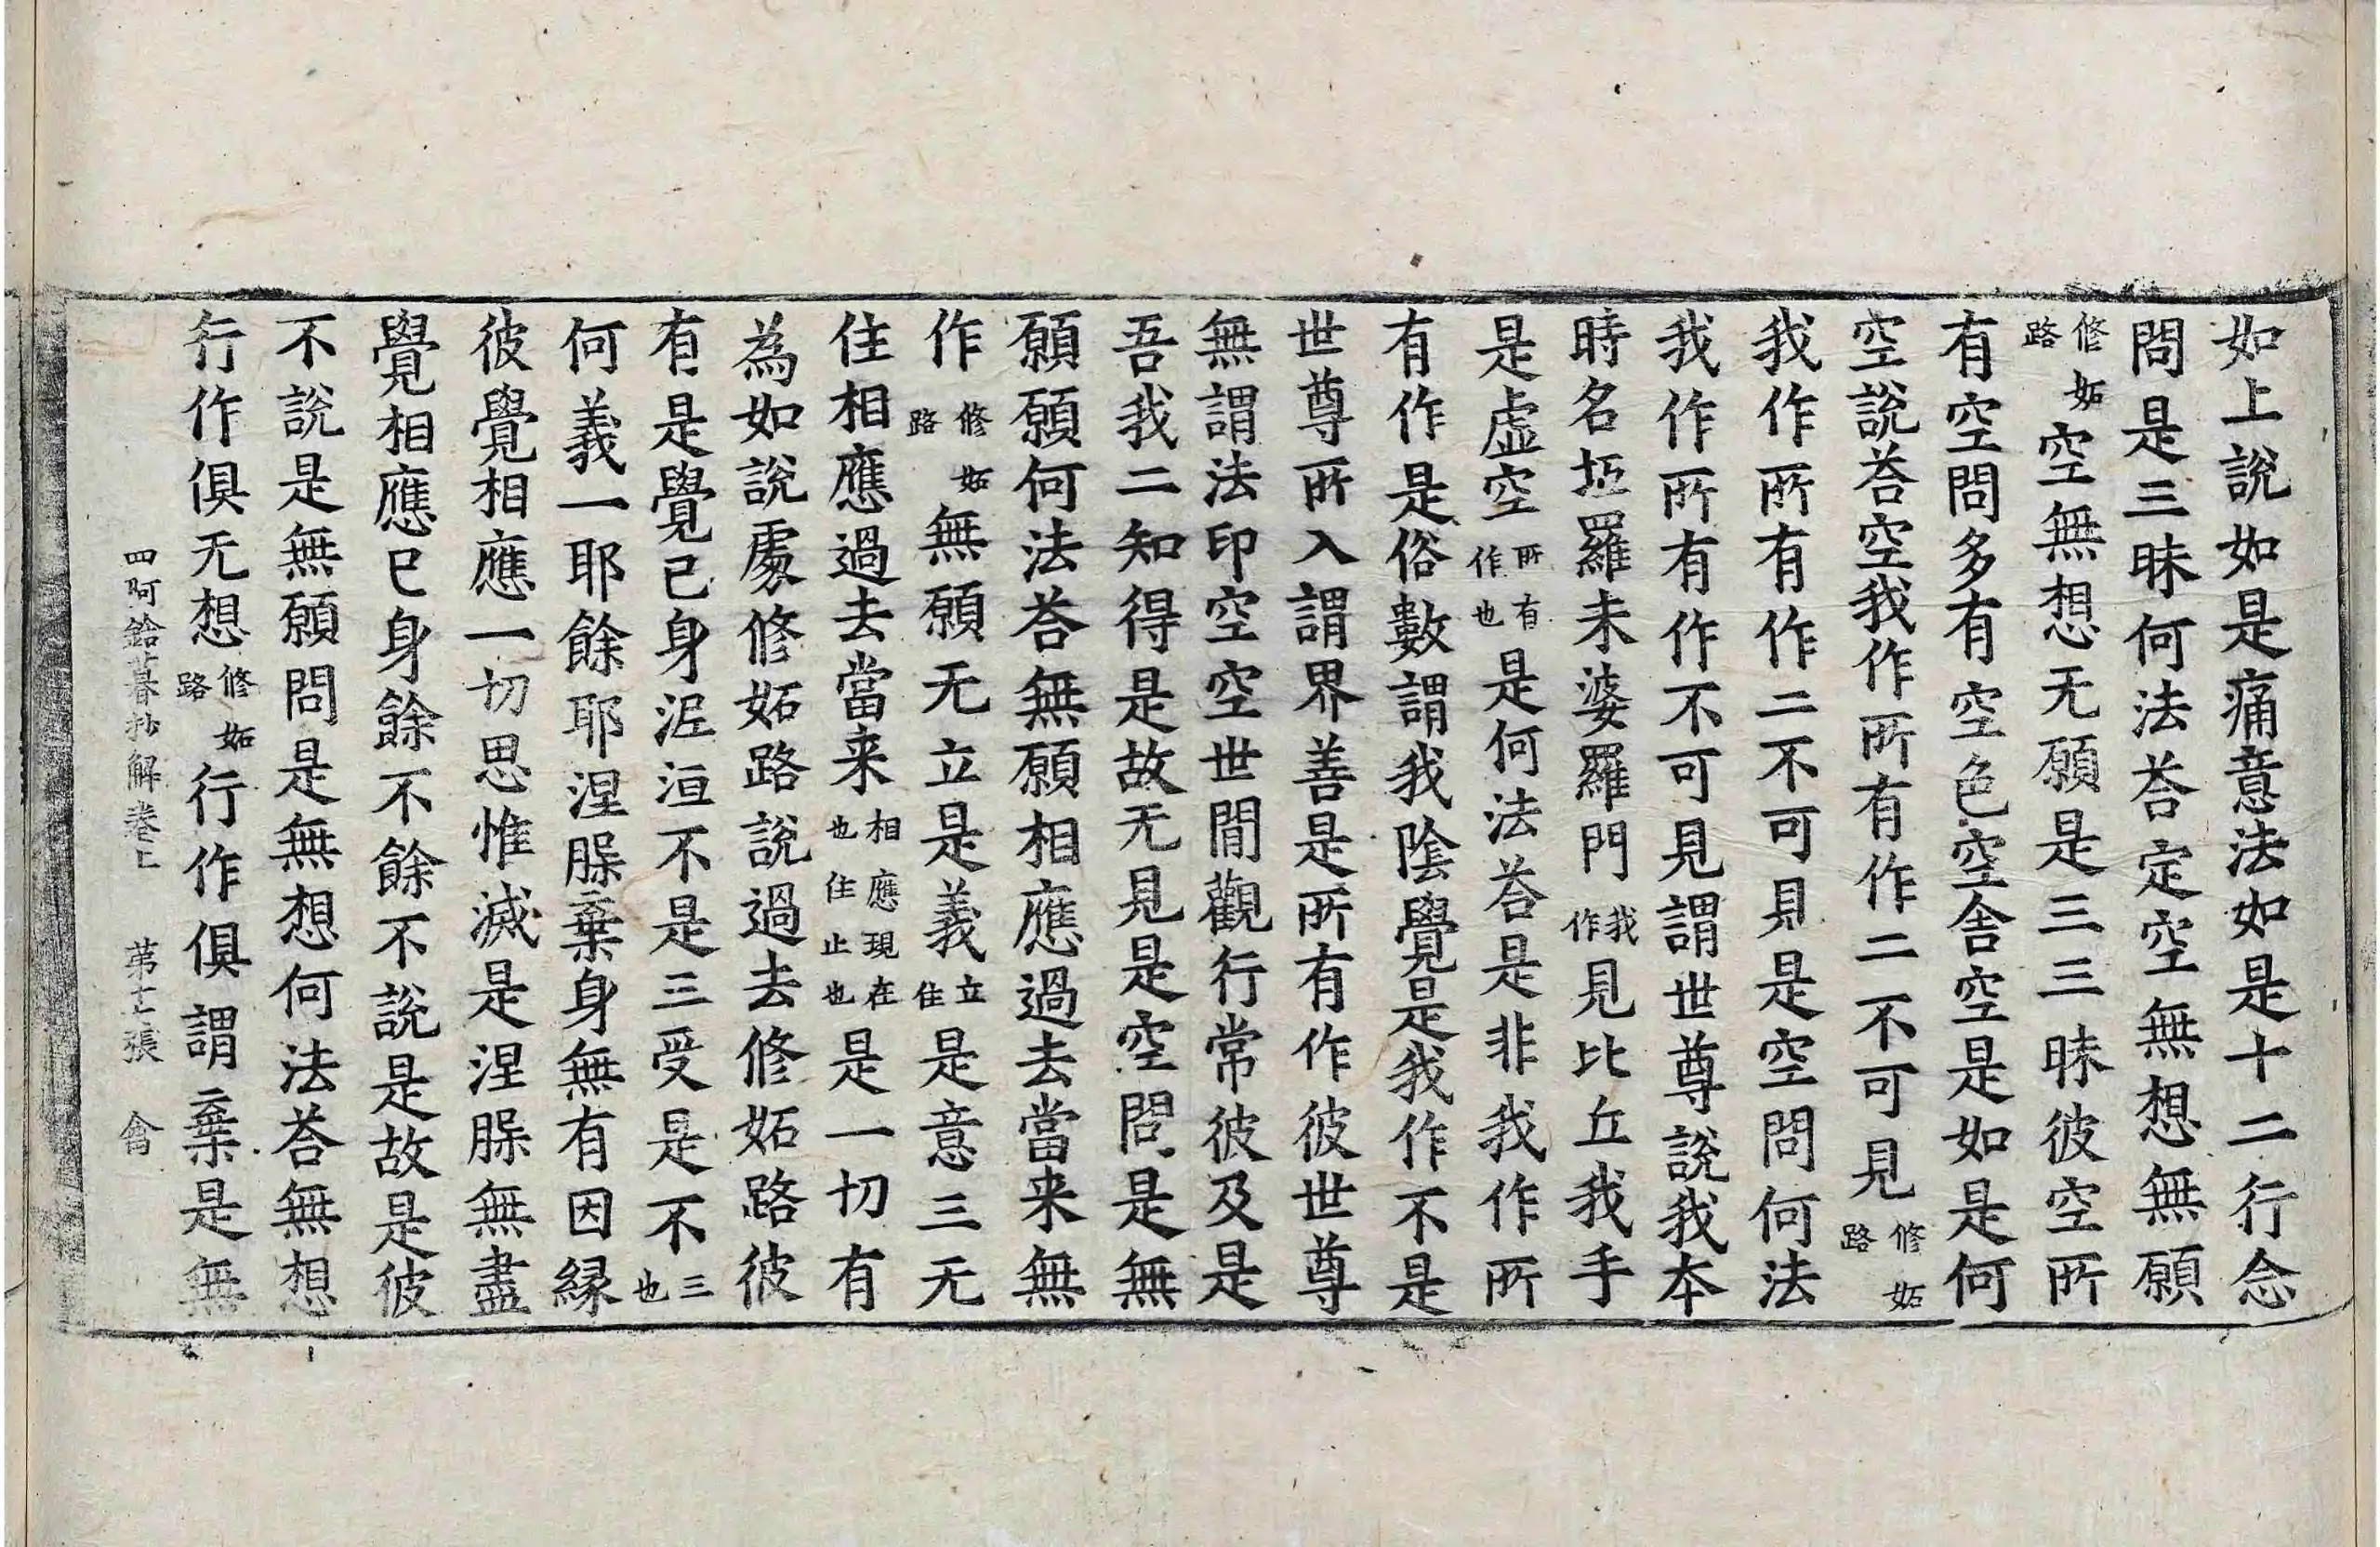 如上說如是痛意法如是十二行念
問是三昧何法荅定空無想無願
修妬路空無想无願是三三昧彼空所
有空問多有空色空舍空是如是何
空說荅空我作所有作二不可見修妬路
我作所有作二不可見是空問何法
我作所有作不可見謂世尊說我本
時名坘羅未婆羅門我作見比丘我手
是虛空所有作也是何法荅是非我作所
有作是俗數謂我陰覺是我作不是
世尊所入謂界善是所有作彼世尊
無謂法印空空世間觀行常彼及是
吾我二知得是故无見是空問是無
願願何法荅無願相應過去當来無
作修妬路無願无立是義立住是意三无
住相應過去當来相應現在也住止也是一切有
為如說處修妬路說過去修妬路彼
有是覺已身泥洹不是三受是不三也
何義一耶餘耶涅槃棄身無有因緣
彼覺相應一切思惟滅是涅槃無盡
覺相應已身餘不餘不說是故是彼
不說是無願問是無想何法荅無想
行作俱无想修妬路行作俱謂棄是無
四阿鋡暮抄解卷上 苐十二張 禽